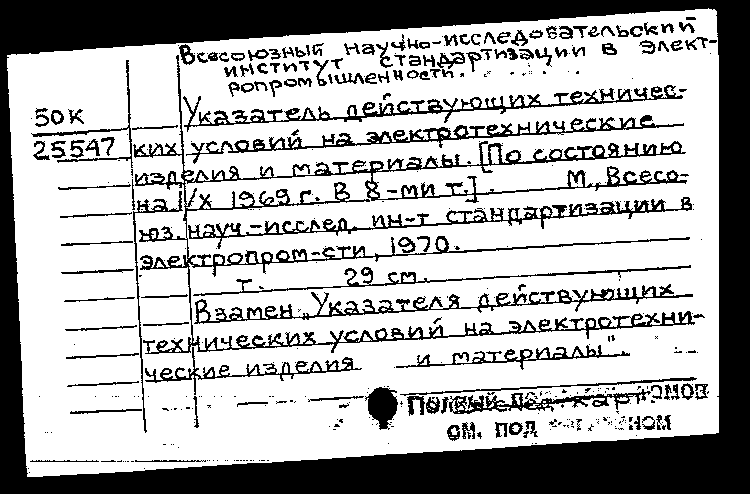 Всесоюзный научно-исследовательский
институт стандартизации в элект-
ропромышленности.
50К
25547
Указатель действующих техничес-
ких условий на электротехнические
изделия и материалы. [По состоянию
на 1/X 1969 г. В 8-ми т.]. М., Всесо-
юз. науч.-исслед. ин-т стандартизации в
электропром-сти, 1970.
т. 29 см.
Взамен „Указателя действующих
технических условий на электротехни-
ческие изделия и материалы".
Полный под
см. под